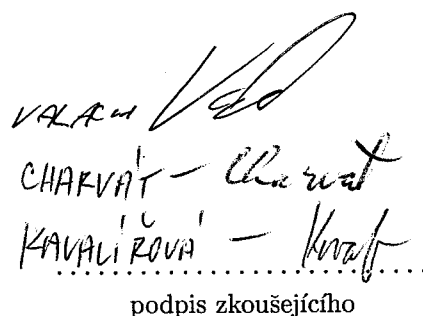 VALACH
CHARVÁT – Charvát
KAVALÍŘOVÁ –
podpis zkoušejícího